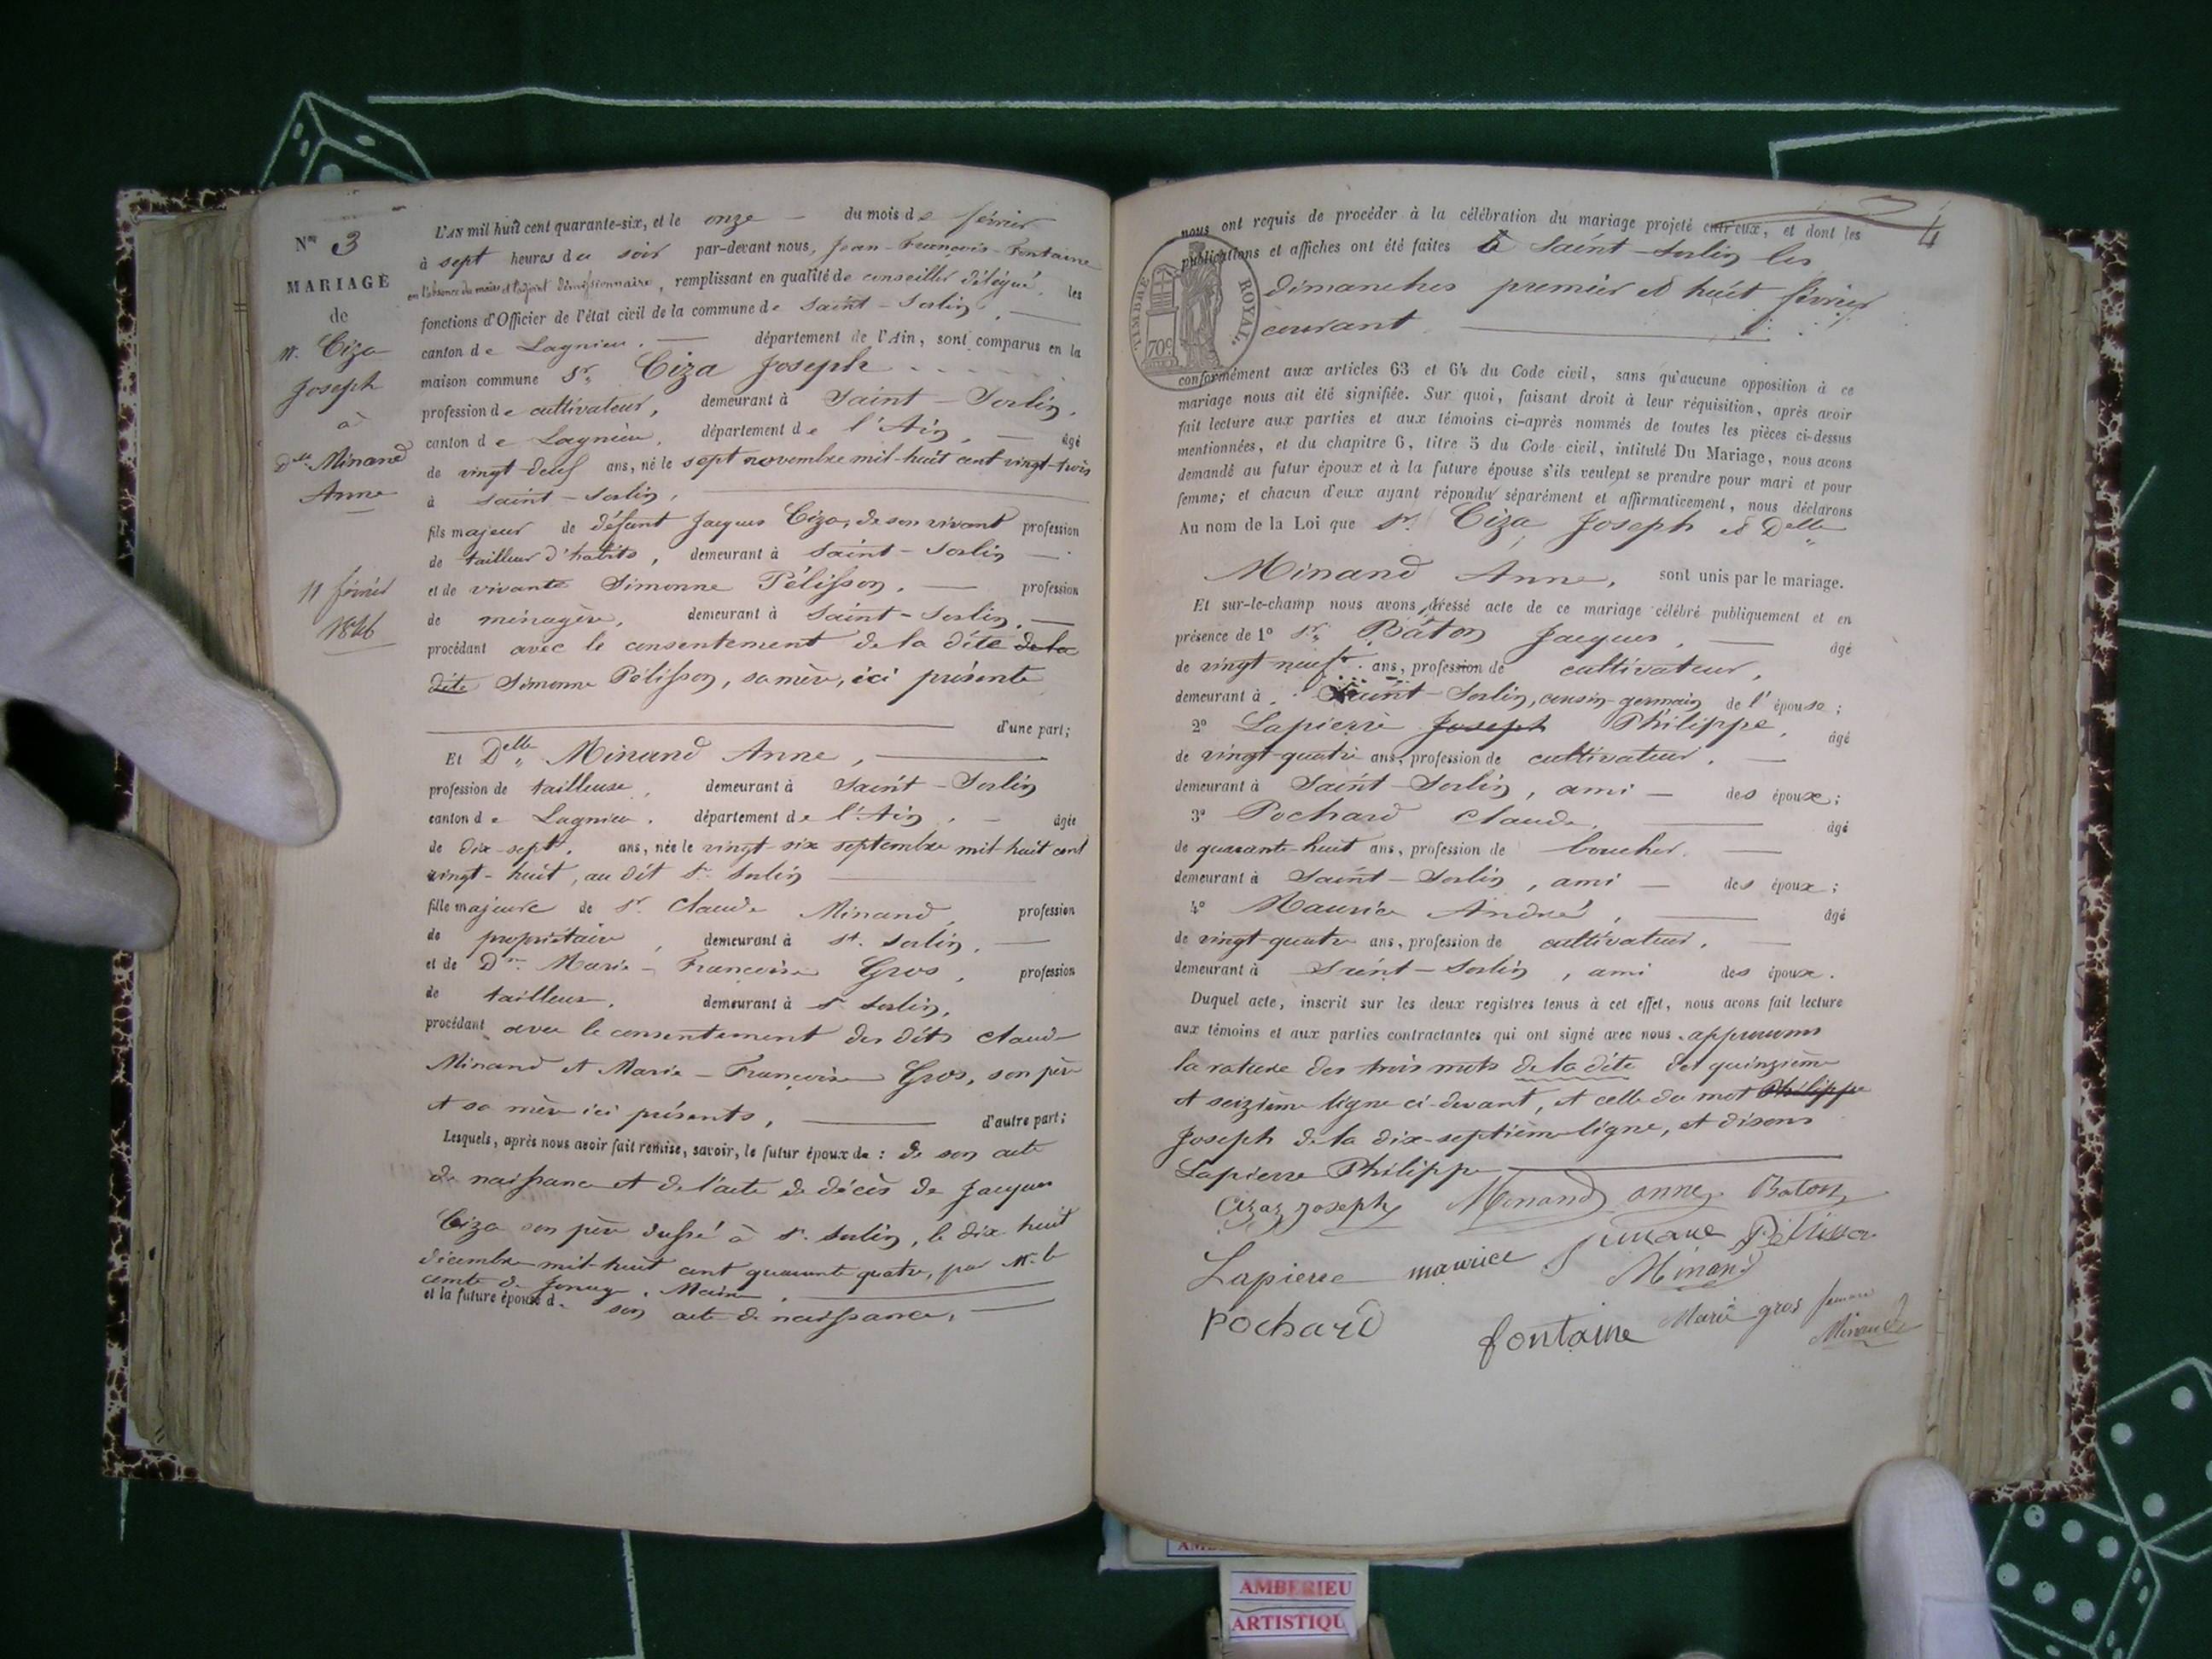 Nro 3
MARIAGE
de
Mr. Ciza
Joseph
à
Dlle Minand
Anne
11 février
1846
L'AN mil huit cent quarante-six, et le onze du mois de février
à sept heures du soir par-devant nous, Jean-François Fontaine
en l'absence du maire et l'adjoint démissionnaire, remplissant en qualité de conseiller délégué, les
fonctions d'Officier de l'état civil de la commune de Saint-Sorlin,
canton de Lagnieu, département de l'Ain, sont comparus en la
maison commune Sr. Ciza Joseph
profession de cultivateur, demeurant à Saint-Sorlin,
canton de Lagnieu, département de l'Ain, âgé
de vingt-deux ans, né le sept novembre mil-huit cent vingt-trois
à Saint-Sorlin,
fils majeur de défunt Jacques Ciza, de son vivant profession
de tailleur d'habits, demeurant à Saint-Sorlin
et de vivante Simonne Pélisson, profession
de ménagère, demeurant à Saint-Sorlin,
procédant avec le consentement de la dite de la
dite Simonne Pélisson, sa mère, ici présente
d'une part;
Et Delle Minand Anne,
profession de tailleuse, demeurant à Saint-Sorlin
canton de Lagnieu, département de l'Ain, âgée
de dix-sept ans, née le vingt-six septembre mil-huit cent
vingt-huit, au dit St. Sorlin
fille majeure de Sr. Claude Minand, profession
de propriétaire, demeurant à St. Sorlin,
et de Dme Marie-Françoise Gros, profession
de tailleuse, demeurant à St Sorlin,
procédant avec le consentement des dits Claude
Minand et Marie-Françoise Gros, son père
et sa mère ici présents, d'autre part;
Lesquels, après nous avoir fait remise, savoir, le futur époux de : de son acte
de naissance et de l'acte de décès de Jacques
Ciza son père dressé à St. Sorlin, le dix-huit
décembre mil-huit cent quarante quatre, par Mr. le
comte de Maire,
et la future épouse d. son acte de naissance,
4
nous ont requis de procéder à la célébration du mariage projeté entr'eux, et dont les
publications et affiches ont été faites à Saint-Sorlin les
dimanches premier et huit février
courant
TIMBRE ROYAL.
70c
conformément aux articles 63 et 64 du Code civil, sans qu'aucune opposition à ce
mariage nous ait été signifiée. Sur quoi, faisant droit à leur réquisition, après avoir
fait lecture aux parties et aux témoins ci-après nommés de toutes les pièces ci-dessus
mentionnées, et du chapitre 6, titre 5 du Code civil, intitulé Du Mariage, nous avons
demandé au futur époux et à la future épouse s'ils veulent se prendre pour mari et pour
femme; et chacun d'eux ayant répondu séparément et affirmativement, nous déclarons
Au nom de la Loi que Sr. Ciza Joseph et Delle
Minand Anne, sont unis par le mariage.
Et sur-le-champ nous avons dressé acte de ce mariage célébré publiquement et en
présence de 1° Sr. Bâton Jacques, âgé
de vingt neuf ans, profession de cultivateur,
demeurant à Saint-Sorlin, cousin-germain de l'épouse;
2° Lapierre Joseph Philippe, âgé
de vingt-quatre ans, profession de cultivateur,
demeurant à Saint-Sorlin, ami des époux;
3° Pochard Claude, âgé
de quarante-huit ans, profession de boucher.
demeurant à Saint-Sorlin, ami des époux;
4° Maurice André, âgé
de vingt-quatre ans, profession de cultivateur,
demeurant à Saint-Sorlin, ami des époux.
Duquel acte, inscrit sur les deux registres tenus à cet effet, nous avons fait lecture
aux témoins et aux parties contractantes qui ont signé avec nous. approuvons
la rature des trois mots de la dite des quinzième
et seizième ligne ci-devant, et celle du mot Philippe
Joseph de la dix-septième ligne, et disons
Lapierre Philippe
Cizaz Joseph Minand anne Baton
Lapierre maurice Simone Pélisson
Minand
Pochard fontaine Marie gros femme
Minand
AMBERIEU
ARTISTIQU